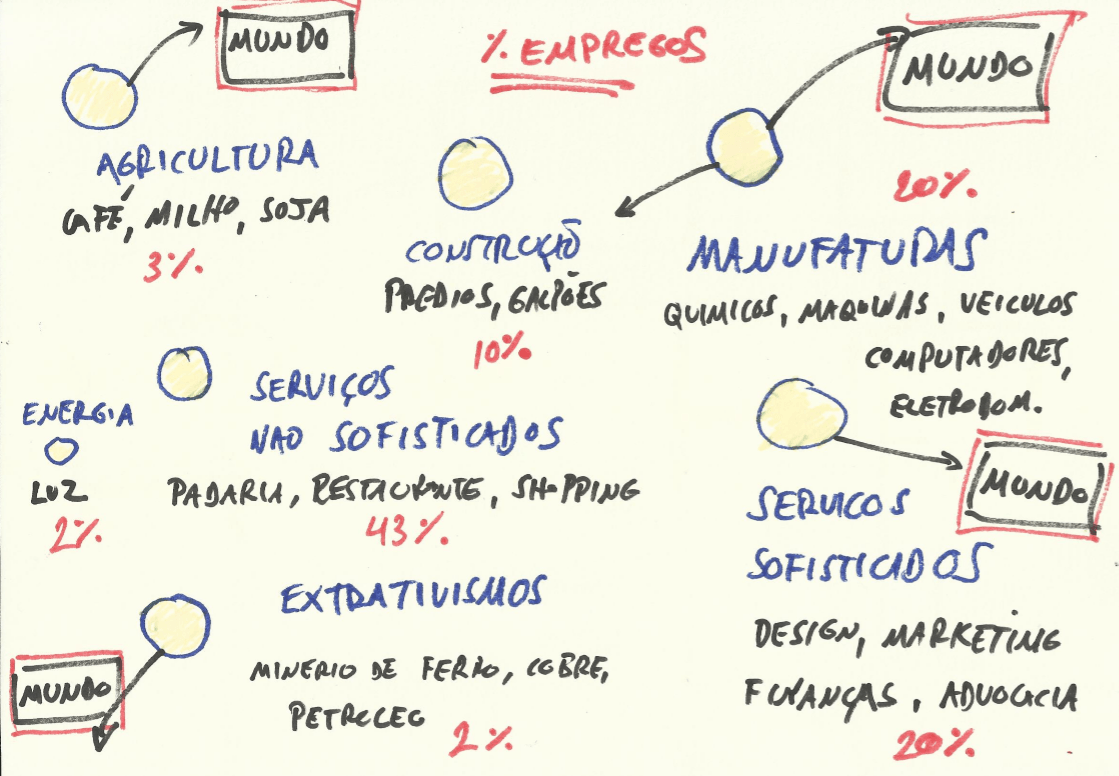 MUNDO
% EMPREGOS
MUNDO
AGRICULTURA
CAFÉ, MILHO, SOJA
3%.
CONSTRUÇÃO
PREDIOS, GALPÕES
10%.
20%.
MANUFATURAS
QUIMICOS, MAQUINAS, VEICULOS
COMPUTADORES,
ELETRODOM.
ENERGIA
LUZ
2%.
SERVIÇOS
NAO SOFISTICADOS
PADARIA, RESTAURANTE, SHOPPING
43%.
MUNDO
SERVICOS
SOFISTICADOS
DESIGN, MARKETING
FINANÇAS, ADVOCACIA
20%.
EXTRATIVISMOS
MINERIO DE FERRO, COBRE,
PETROLEO
2%.
MUNDO